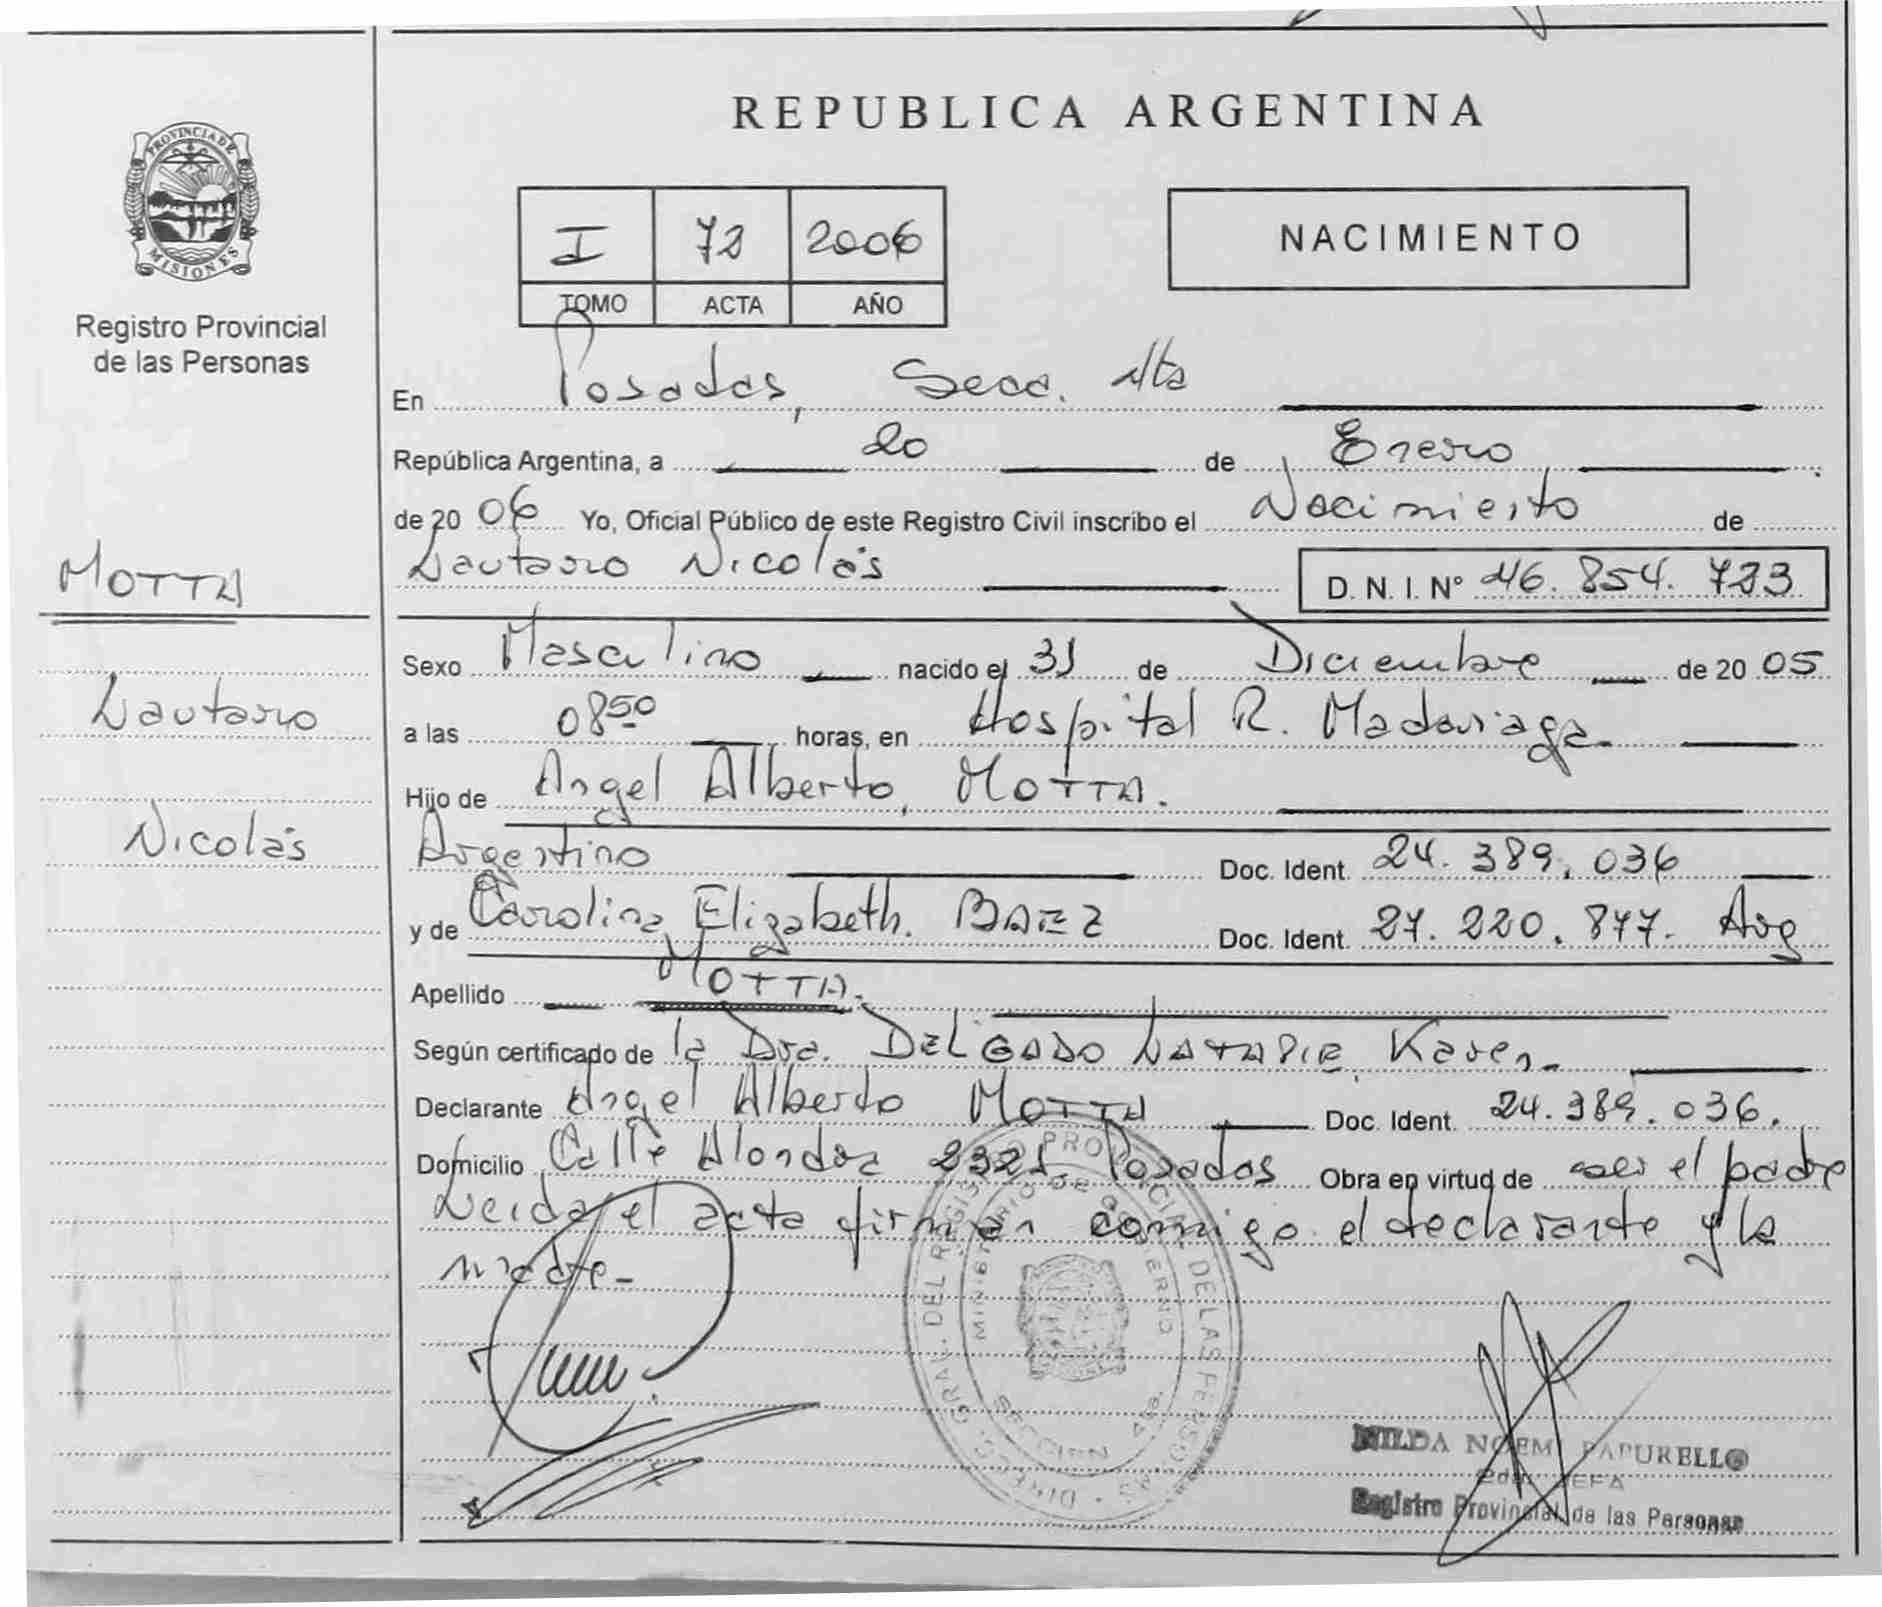 PROVINCIA DE
MISIONES
Registro Provincial
de las Personas
MOTTA
Lautaro
Nicolás
REPUBLICA ARGENTINA
I 72 2006
TOMO ACTA AÑO
NACIMIENTO
En Posadas, Secc. 4ta
República Argentina, a 20 de Enero
de 2006 Yo, Oficial Público de este Registro Civil inscribo el Nacimiento de
Lautaro Nicolás D. N. I. N° 46.854.723
Sexo Masculino nacido el 31 de Diciembre de 2005
a las 08 50 horas, en Hospital R. Madariaga.
Hijo de Angel Alberto, MOTTA.
Argentino Doc. Ident. 24.389.036
y de Carolina Elizabeth. BAEZ Doc. Ident. 27.220.877. Arg
Apellido MOTTA.
Según certificado de la Dra. DELGADO NATALIE Karen
Declarante Angel Alberto MOTTA Doc. Ident. 24.389.036.
Domicilio Calle Alondra 2321 Posadas Obra en virtud de ser el padre
Leida el acta firman conmigo el declarante y la
madre-
DIREC. GRAL. DEL REGISTRO PROVINCIAL DE LAS PERSONAS
MINISTERIO DE GOBIERNO
SECCION 4ta.
NILDA NOEMI PAPURELLO
JEFA
Registro Provincial de las Personas